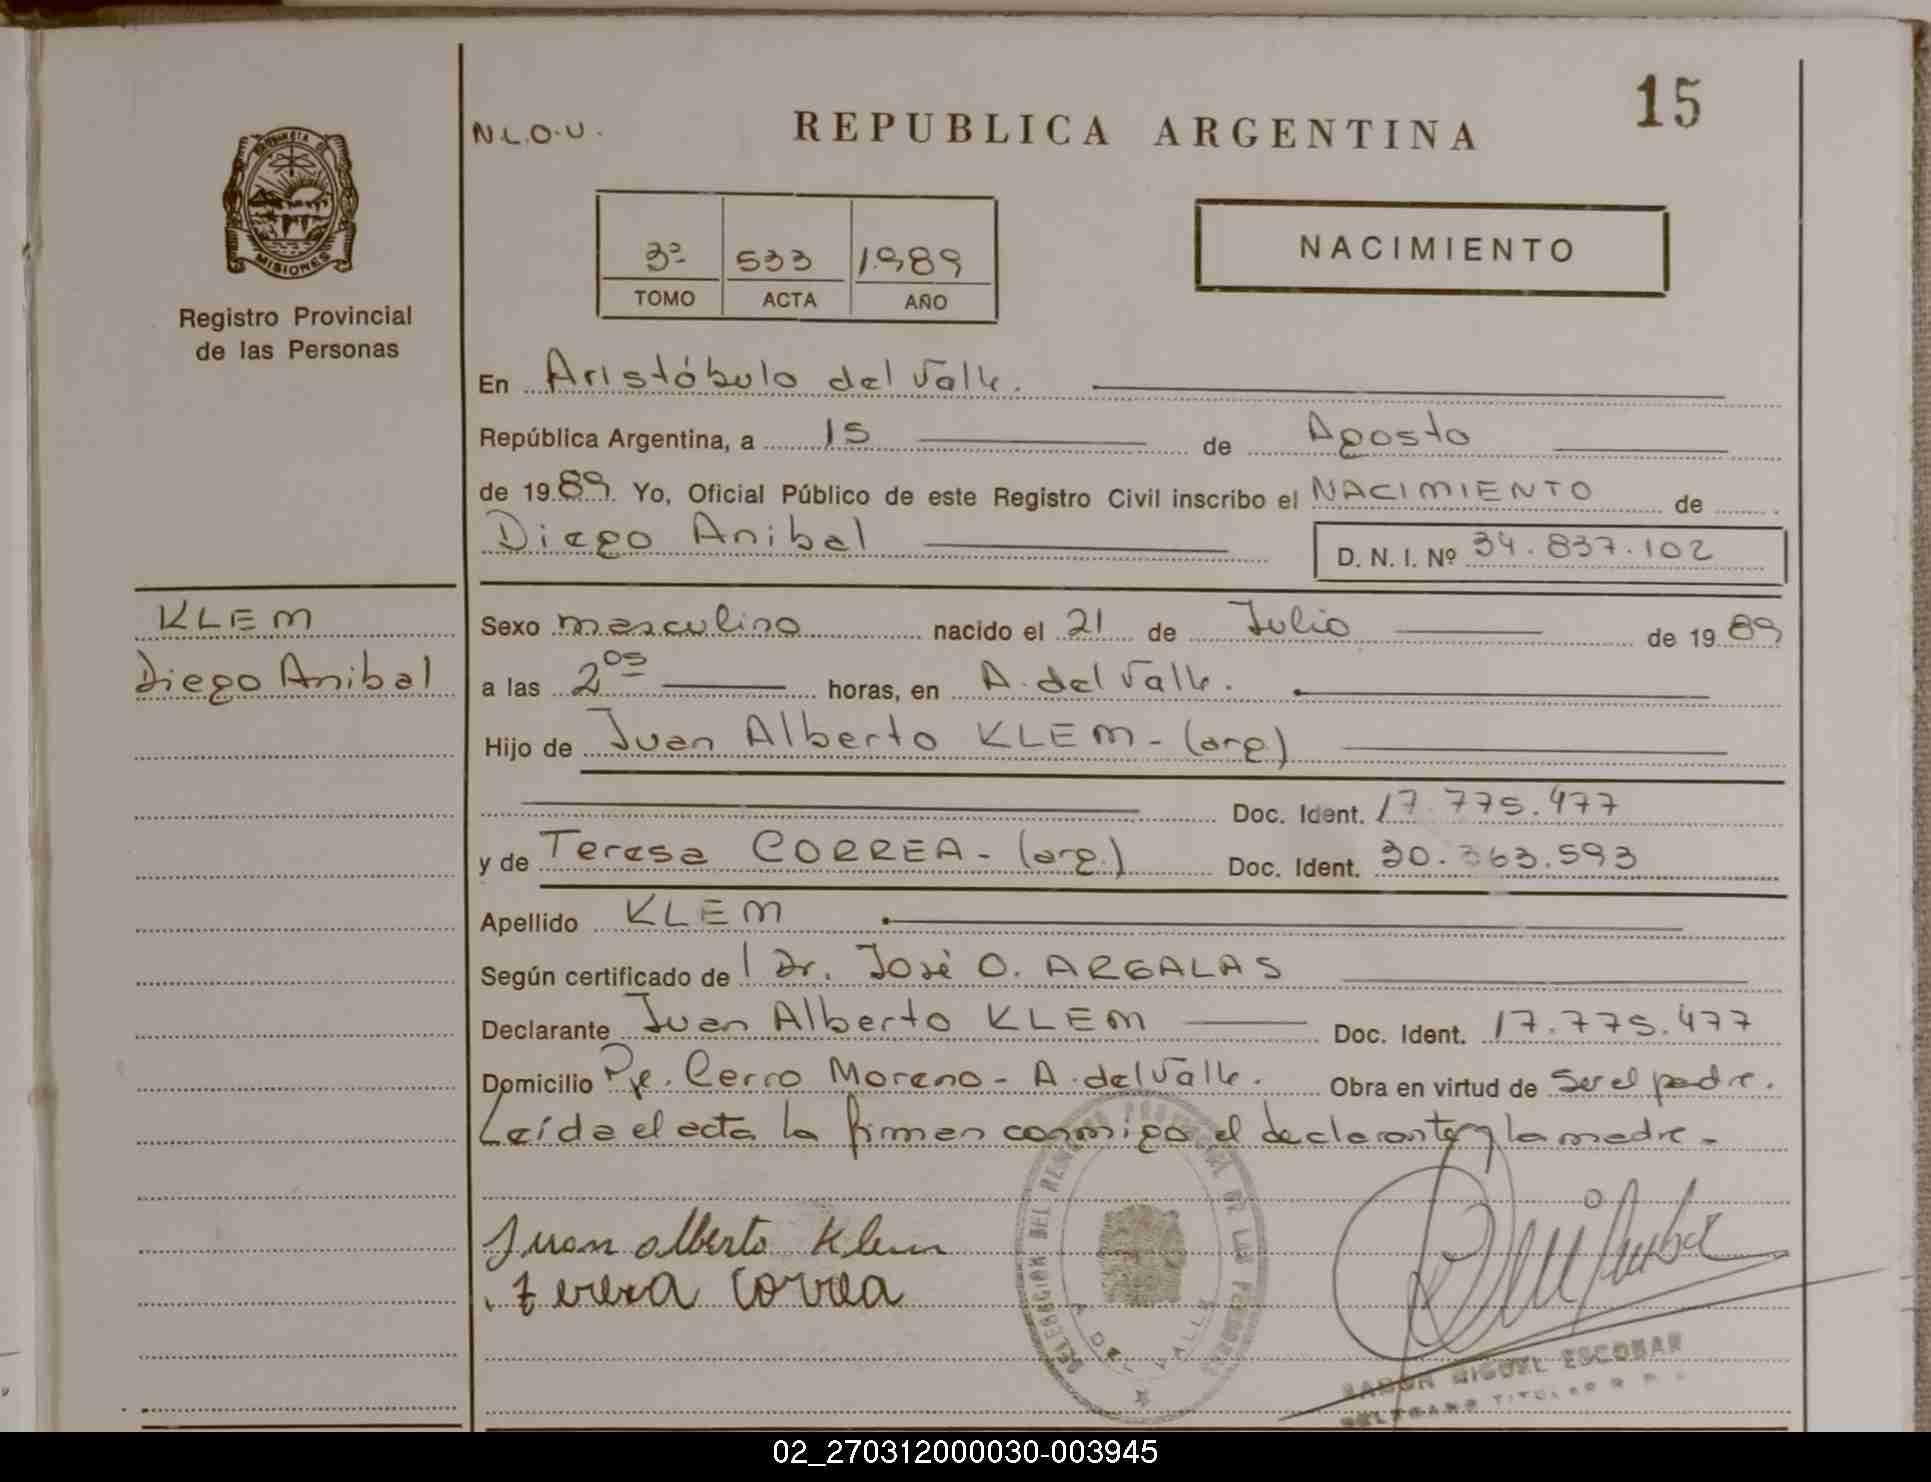 15
N.L.O.U.
REPUBLICA ARGENTINA
MISIONES
3º 533 1989
TOMO ACTA AÑO
NACIMIENTO
Registro Provincial
de las Personas
En Aristóbulo del Valle.
República Argentina, a 15 de Agosto
de 1989. Yo, Oficial Público de este Registro Civil inscribo el NACIMIENTO de
Diego Anibal D. N. I. Nº 34.837.102
KLEM
Diego Anibal
Sexo masculino nacido el 21 de Julio de 1989
a las 2 05 horas, en A. del Valle.
Hijo de Juan Alberto KLEM - (arg)
Doc. Ident. 17.775.477
y de Teresa CORREA - (arg.) Doc. Ident. 30.363.593
Apellido KLEM
Según certificado de l Dr. José O. ARGALAS
Declarante Juan Alberto KLEM Doc. Ident. 17.775.477
Domicilio Pje. Cerro Moreno - A. del Valle. Obra en virtud de Ser el padre.
Leída el acta la firman conmigo el declarante y la madre -
Juan alberto Klem
teresa Correa
DELEGACION DEL REGISTRO PROVINCIAL DE LAS PERSONAS
A DEL VALLE
RAMON MIGUEL ESCOBAR
TITULAR
02_270312000030-003945